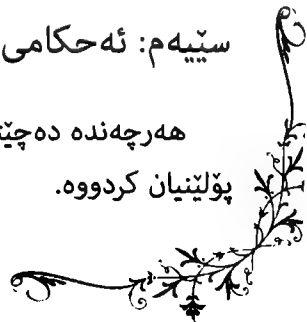 سێیەم: ئەحکامی
هەرچەندە
پۆلێنیان کردووە.